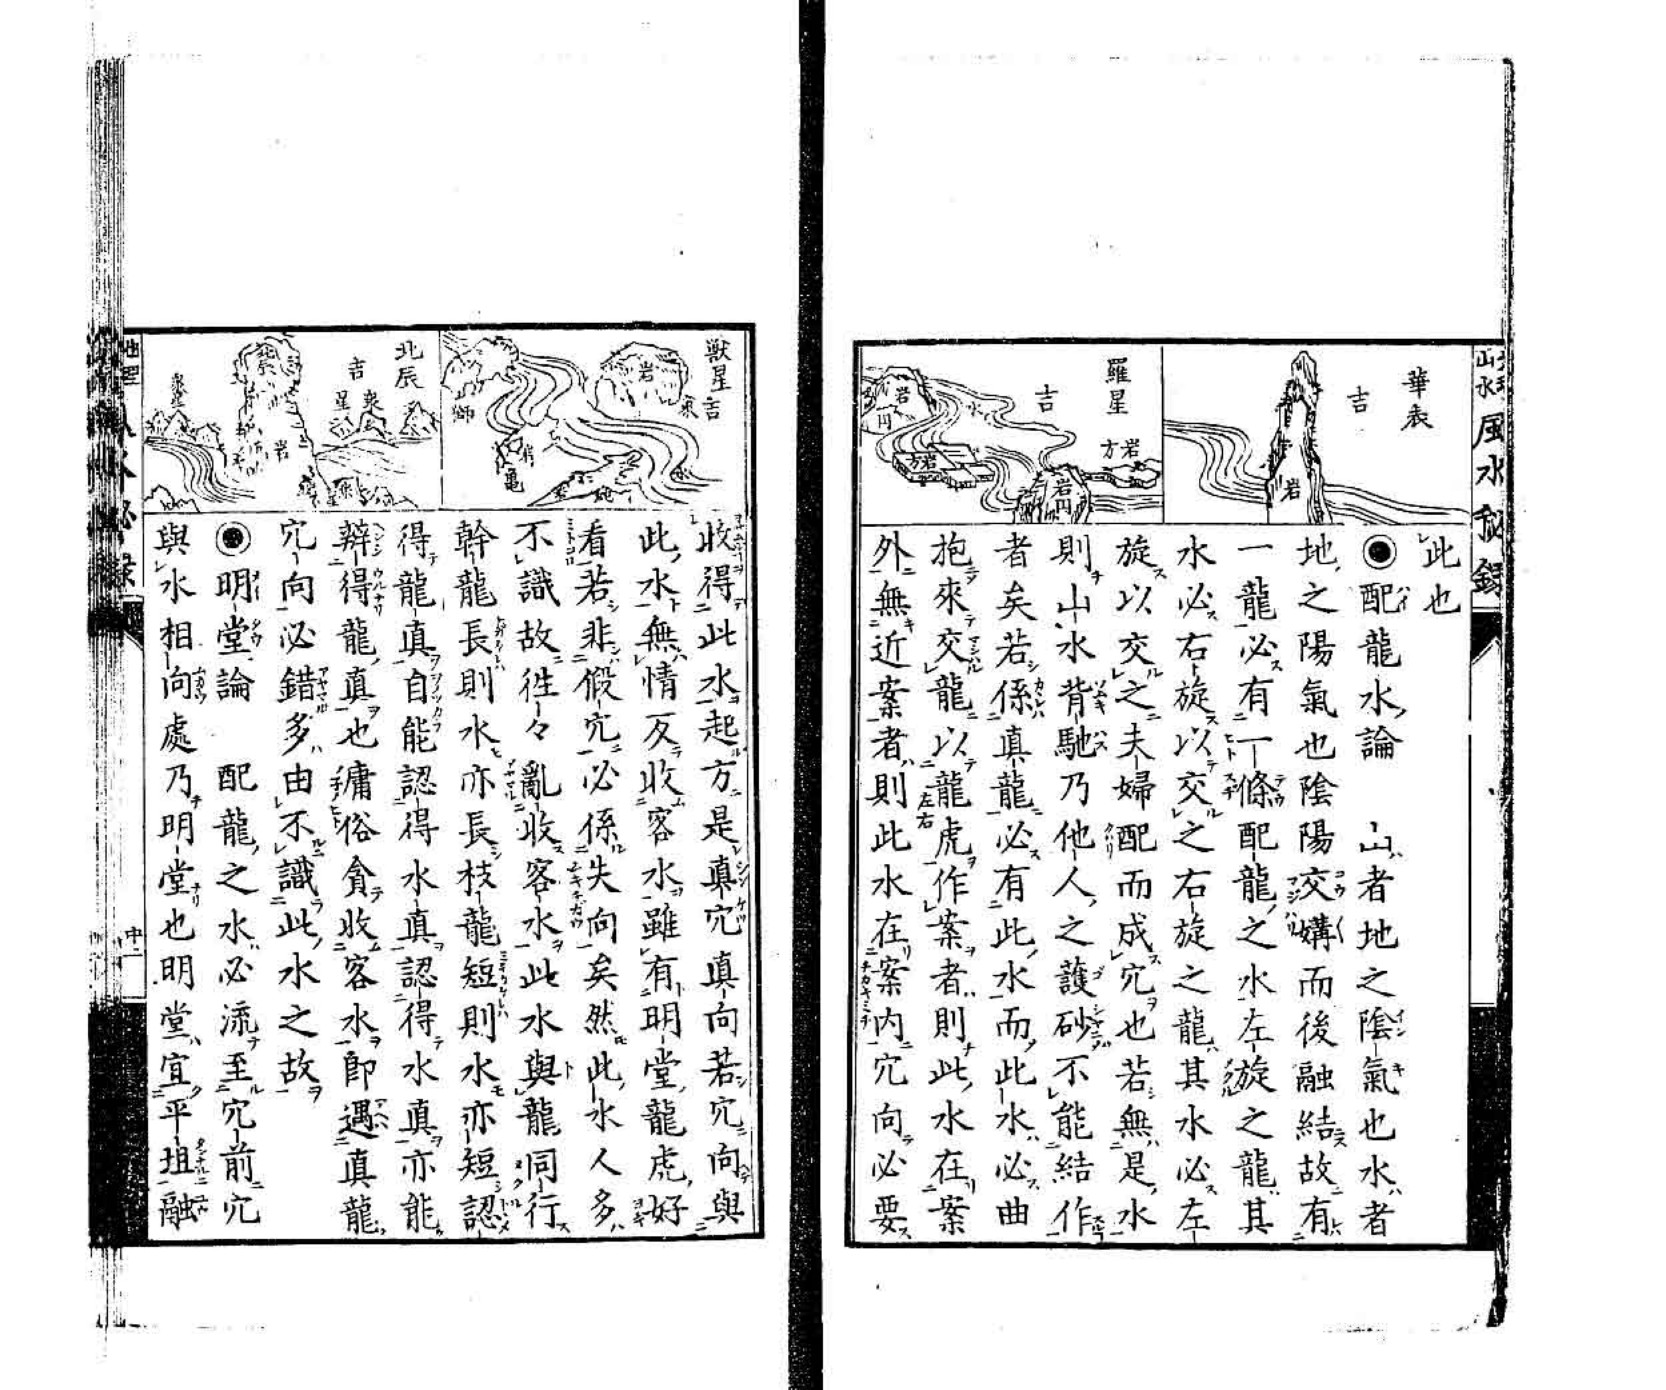 華表
吉
岩
羅星
吉
水
岩
円
岩方
岩方
岩円
此也
◉配龍水論　山者地之陰氣也水者
地之陽氣也陰陽交媾而後融結故有
一龍必有一條配龍之水左旋之龍其
水必右旋以交之右旋之龍其水必左
旋以交之夫婦配而成穴也若無是水
則山水背馳乃他人之護砂不能結作
者矣若係真龍必有此水而此水必曲
抱來交龍以龍虎作案者則此水在案
外無近案者則此水在案内穴向必要
獸星吉
岩
獅
龜
北辰
吉
衆星
岩
收得此水起方是真穴真向若穴向與
此水無情反收客水雖有明堂龍虎好
看若非假穴必係失向矣然此水人多
不識故徃々亂收客水此水與龍同行
幹龍長則水亦長枝龍短則水亦短認
得龍真自能認得水真認得水真亦能
辨得龍真也庸俗貪收客水即遇真龍
穴向必錯多由不識此水之故
◉明堂論　配龍之水必流至穴前穴
與水相向處乃明堂也明堂宜平坦融
風水秘録
中二